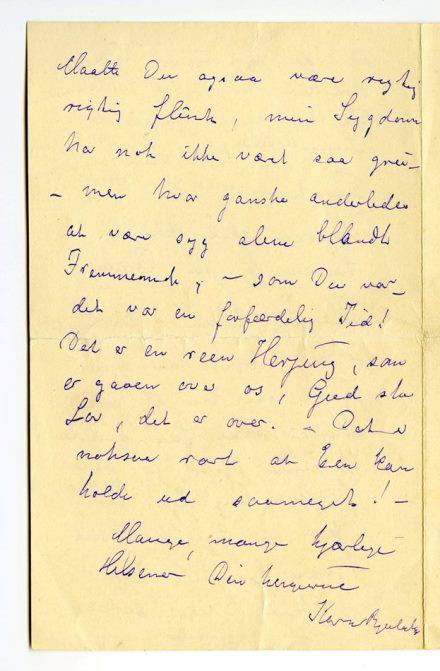 Maatte Du ogsaa være rigtig
rigtig flink, min Sygdom
har nok ikke været saa
– men hvor ganske anderledes
at være syg alene blandt
Fremmende, – som Du var –
det var en forfærdelig Tid!
Det er en reen Herjing, som
er gaaen over os, Gud ske
Lov, det er over. – Det er
noksaa rart at Een kan
holde ud saameget! –
Mange, mange kjærlige
Hilsener Din hengivne